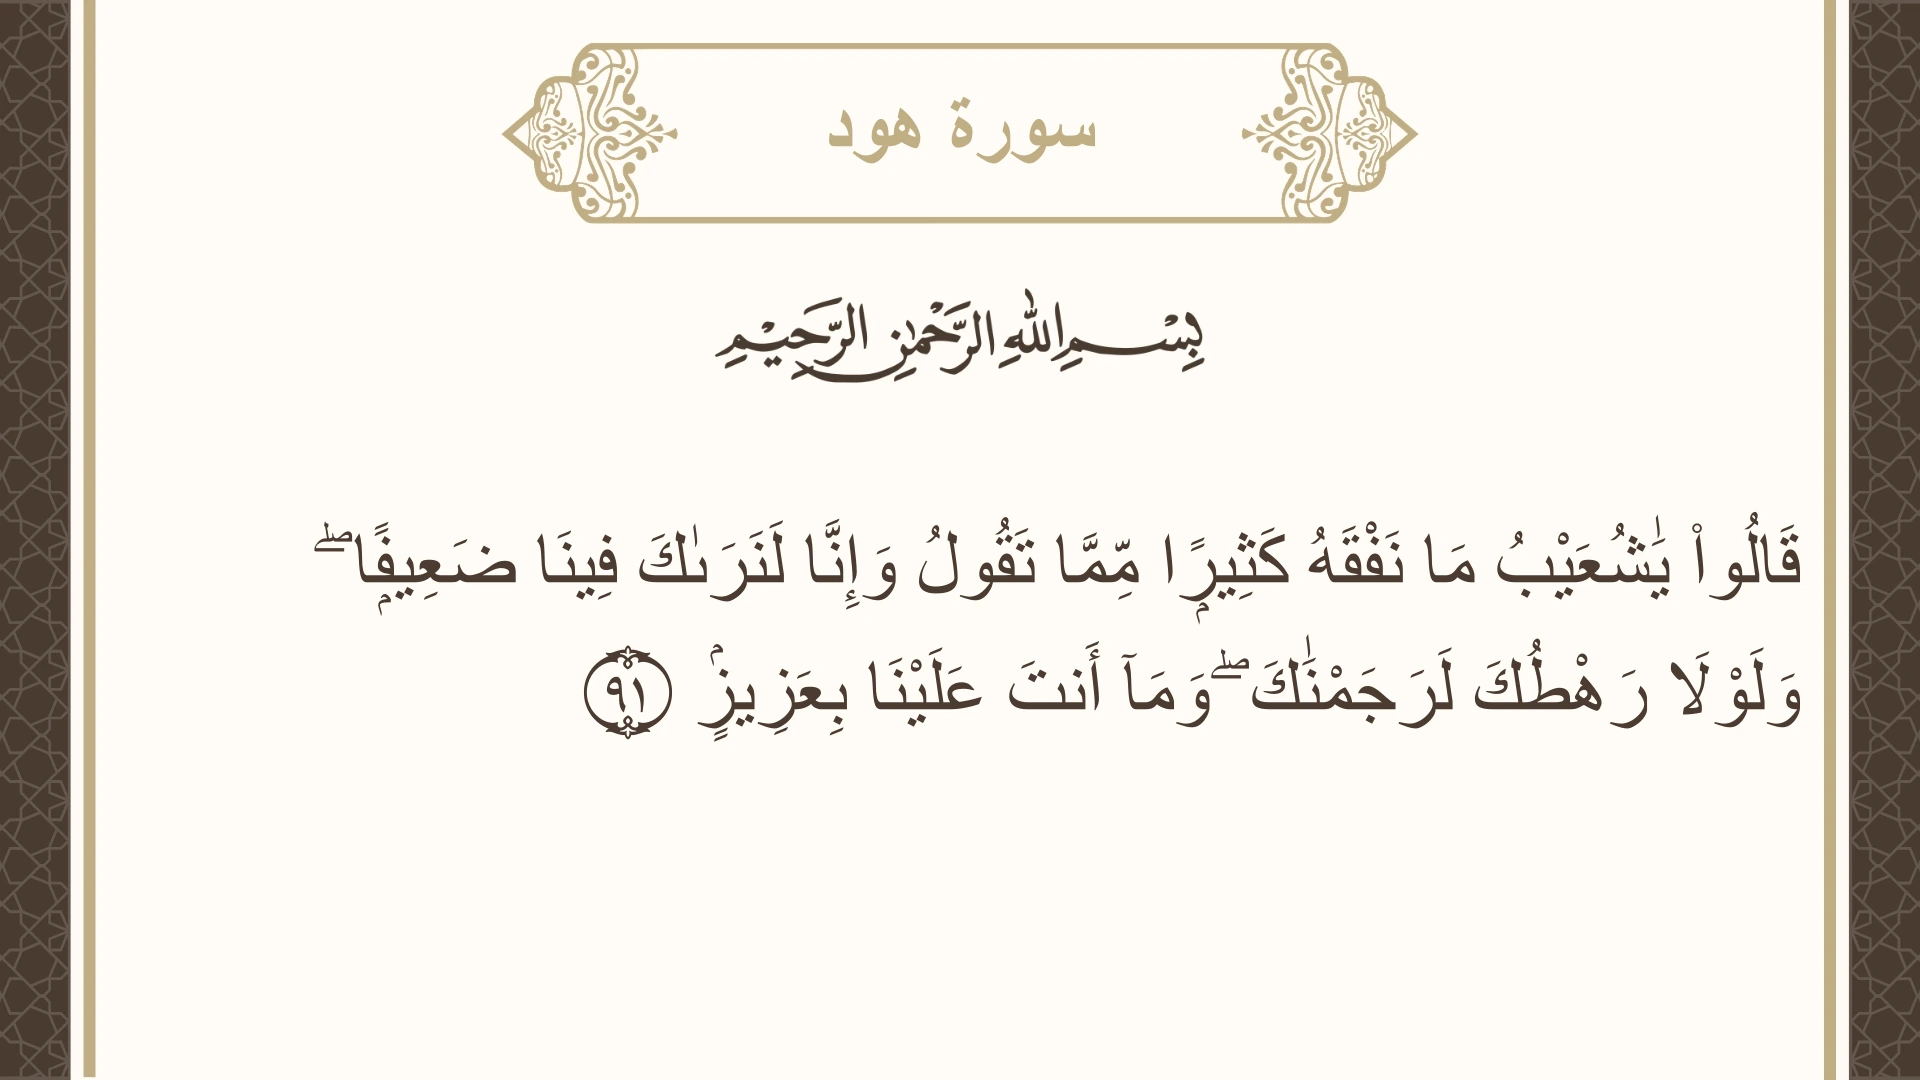 سورة هود
بِسْمِ اللهِ الرَّحْمٰنِ الرَّحِيْمِ
قَالُوا۟ يَٰشُعَيْبُ مَا نَفْقَهُ كَثِيرًۭا مِّمَّا تَقُولُ وَإِنَّا لَنَرَىٰكَ فِينَا ضَعِيفًۭا ۖ
وَلَوْلَا رَهْطُكَ لَرَجَمْنَٰكَ ۖ وَمَآ أَنتَ عَلَيْنَا بِعَزِيزٍۢ ٩١